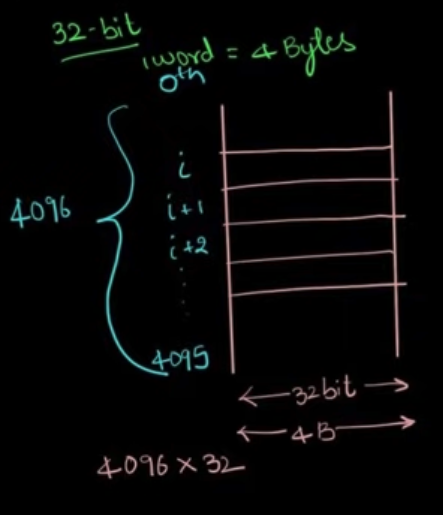 32-bit
1word = 4 Bytes
0th
i
4096
i+1
i+2
4095
32bit
4B
4096 × 32